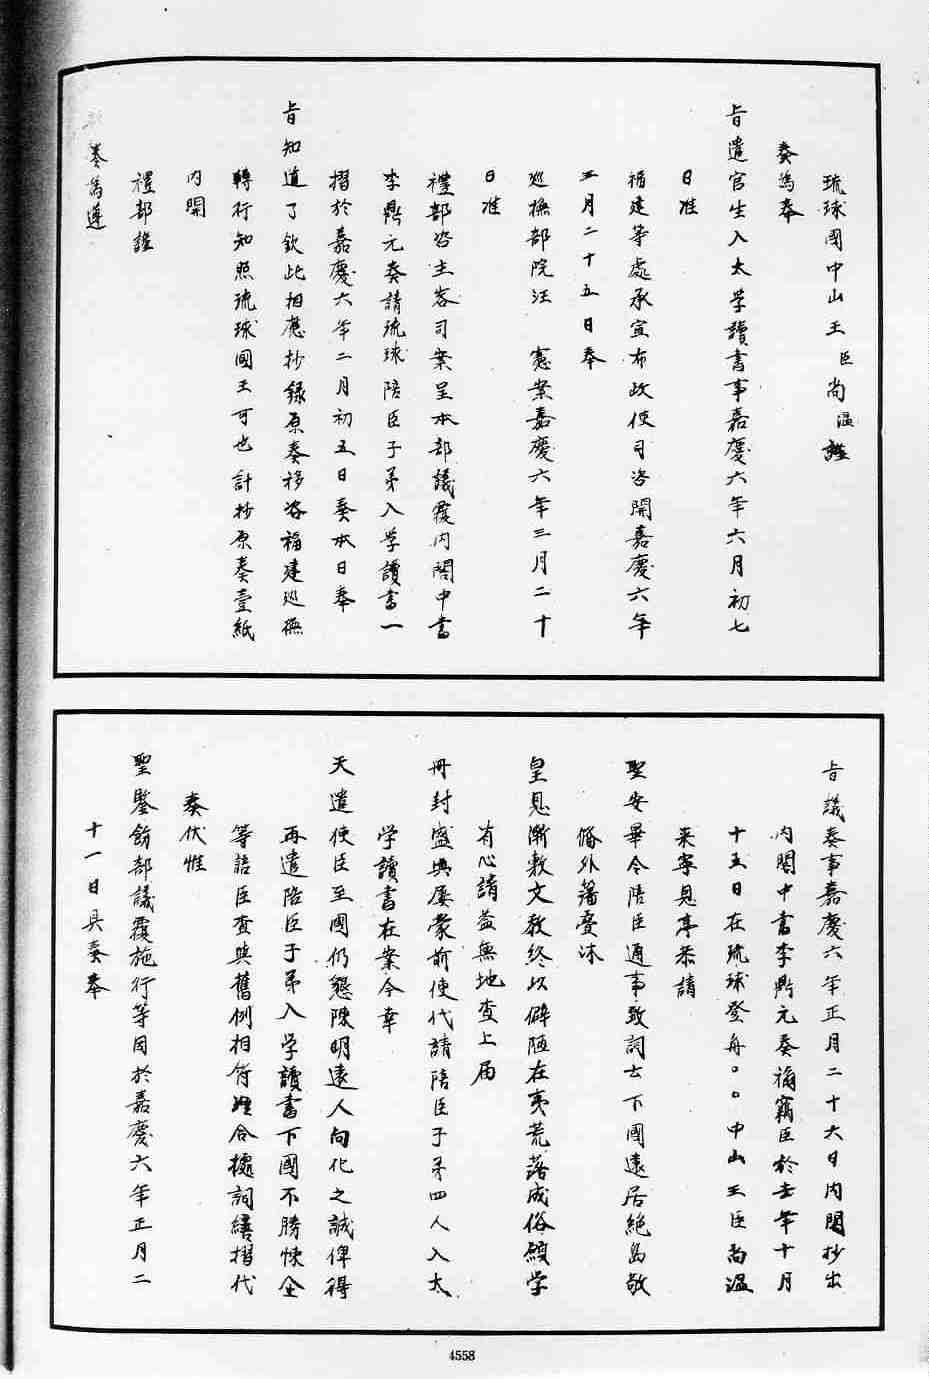 琉球國中山王臣尚溫謹
奏為奉
旨遣官生入太学讀書事嘉慶六年六月初七
日准
福建等處承宣布政使司咨開嘉慶六年
五月二十五日奉
巡撫部院汪 憲案嘉慶六年三月二十
日准
禮部咨主客司案呈本部議覆內閣中書
李鼎元奏請琉球陪臣子弟入学讀書一
摺於嘉慶六年二月初五日奏本日奉
旨知道了欽此相應抄錄原奏移咨福建巡撫
轉行知照琉球國王可也計抄原奏壹紙
內開
禮部謹
奏為遵
旨議奏事嘉慶六年正月二十六日內閣抄出
內閣中書李鼎元奏稱竊臣於去年十月
十五日在琉球登舟。。中山王臣尚溫
來寧恩亭恭請
聖安畢令陪臣通事致詞云下國遠居絶島敬
備外藩受沐
皇恩漸敷文教終以僻陋在夷荒落成俗願学
有心請益無地查上届
冊封盛典屡蒙前使代請陪臣子弟四人入太
学讀書在案今幸
天遣使臣至國仍懇陳明遠人向化之誠俾得
再遣陪臣子弟入学讀書下國不勝悚企
等語臣查與舊例相符理合據詞繕摺代
奏伏惟
聖鑒飭部議覆施行等因於嘉慶六年正月二
十一日具奏奉
4558